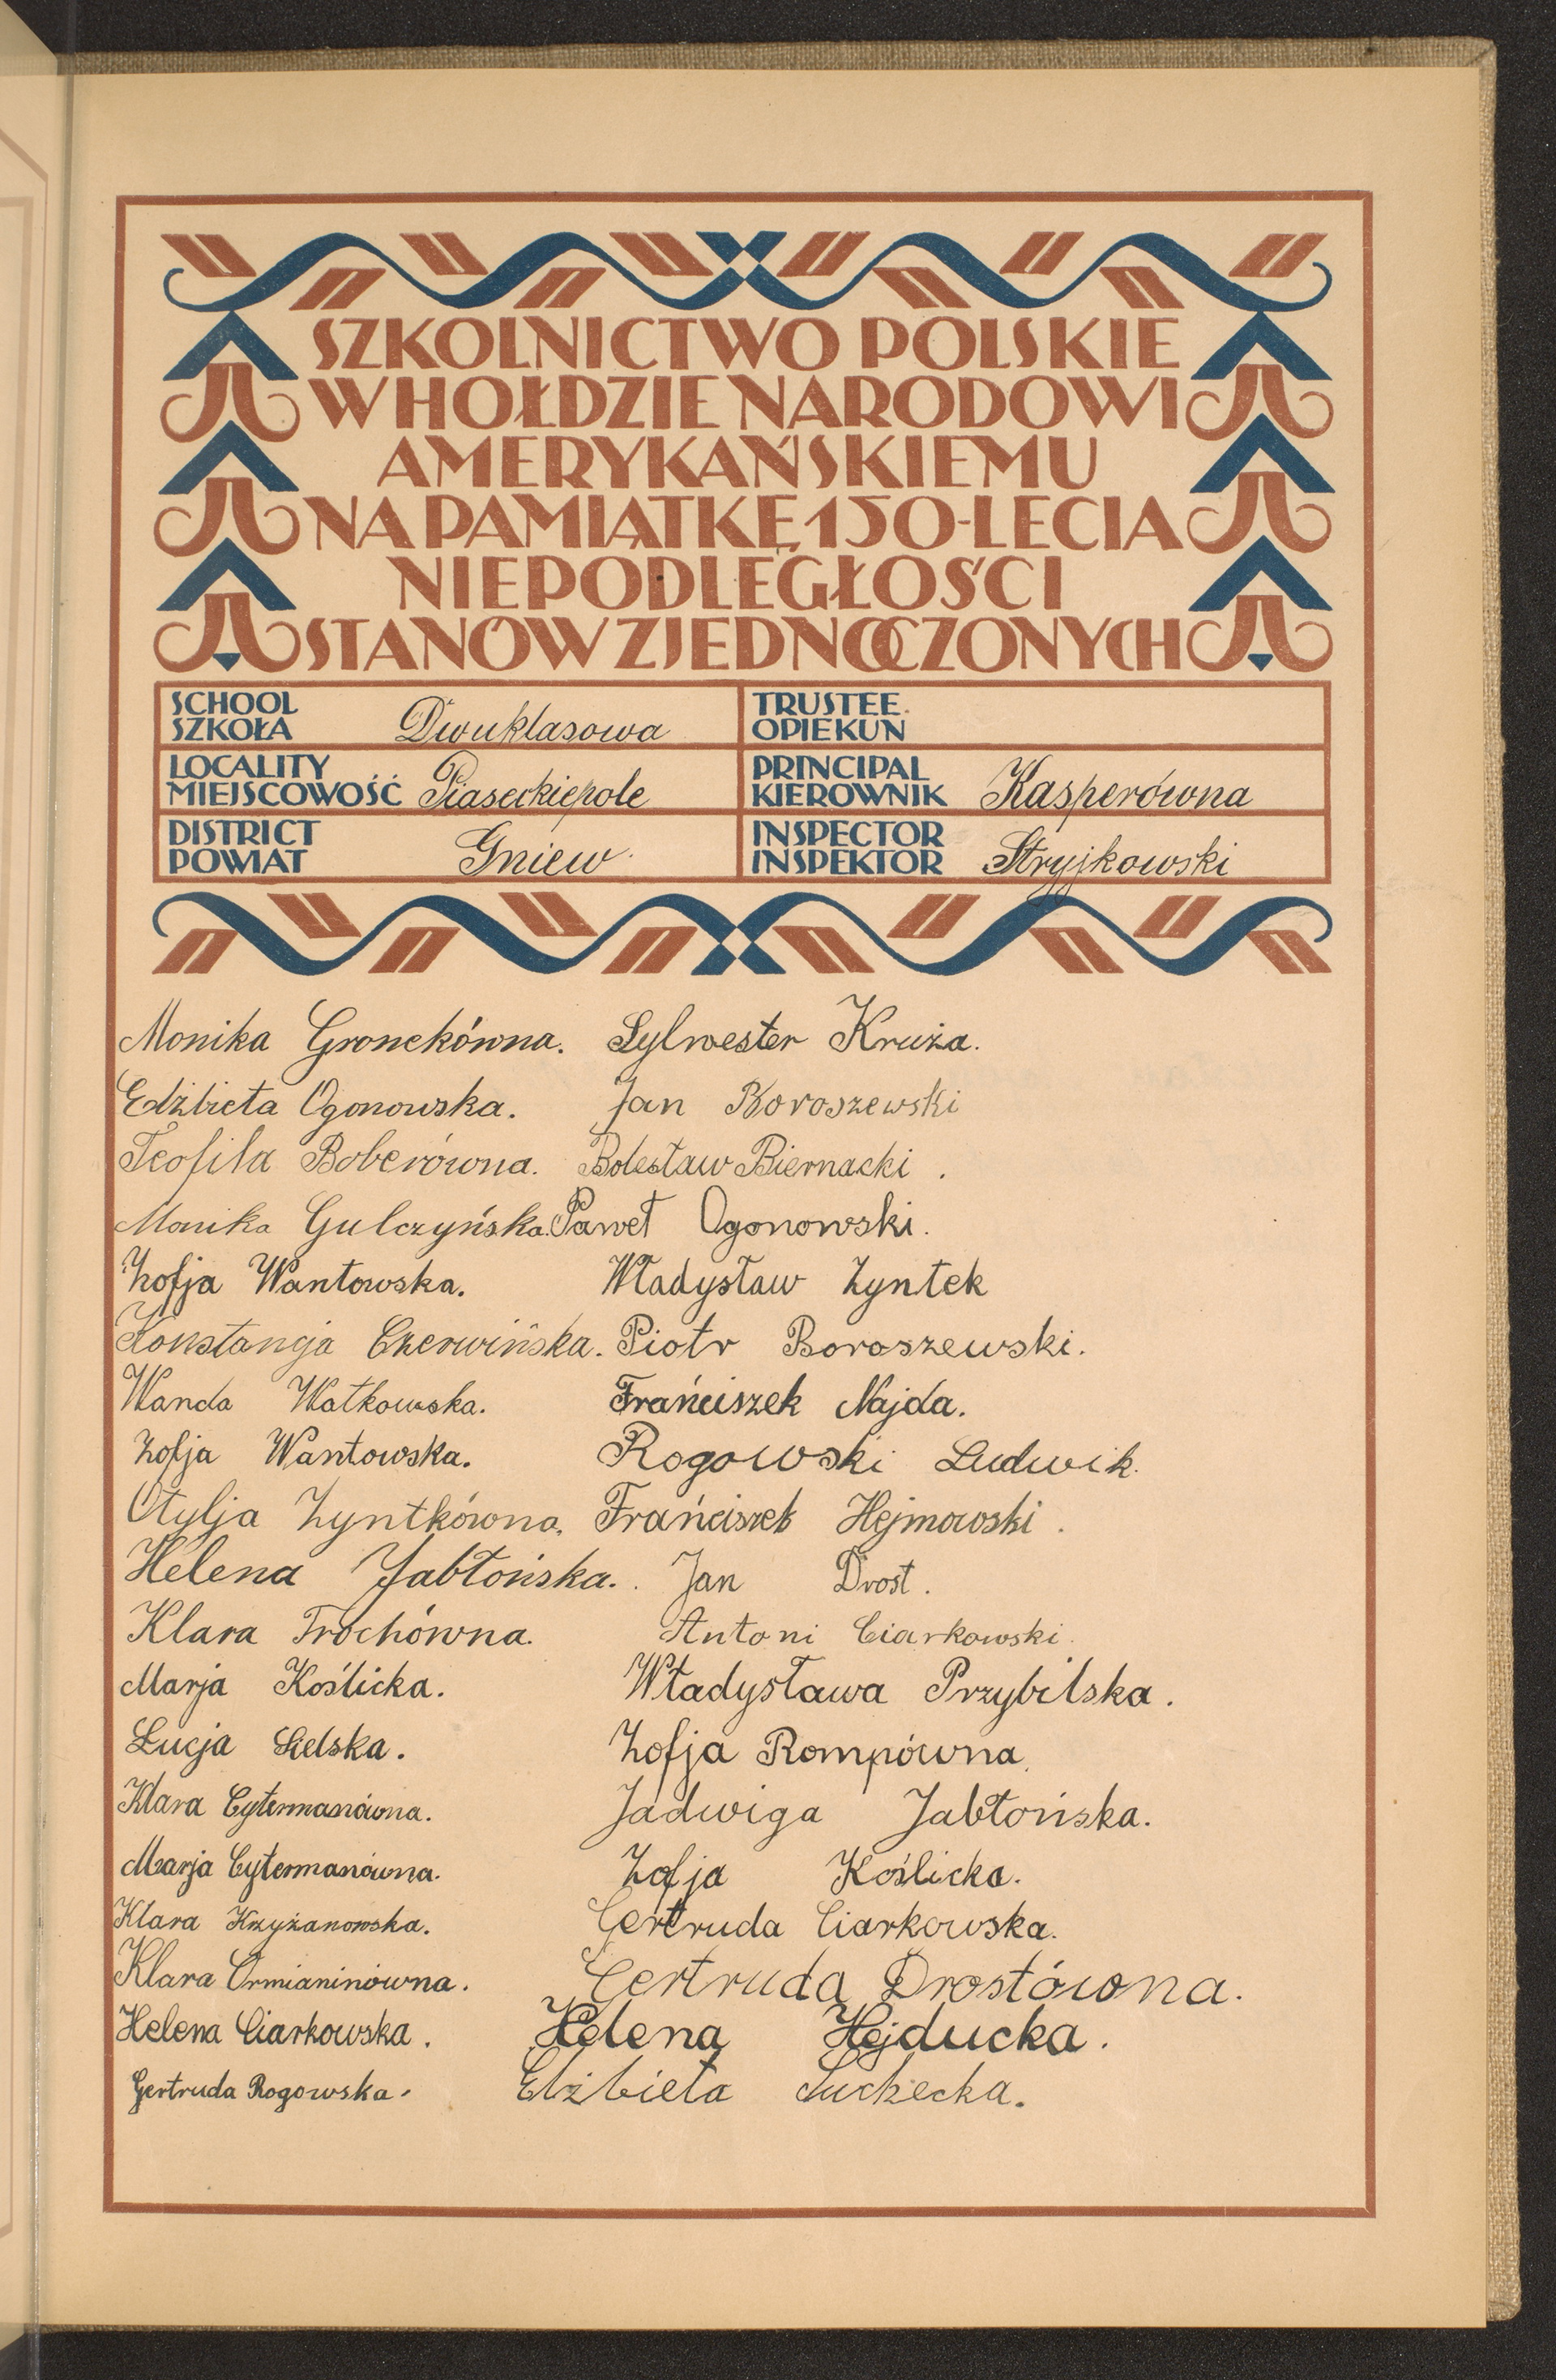 SZKOLNICTWO POLSKIE
W HOŁDZIE NARODOWI
AMERYKAŃSKIEMU
NA PAMIĄTKĘ 150-LECIA
NIEPODLEGŁOŚCI
STANÓW ZJEDNOCZONYCH
SCHOOL
SZKOŁA Dwuklasowa
TRUSTEE
OPIEKUN
LOCALITY
MIEJSCOWOŚĆ Piaseckiepole
PRINCIPAL
KIEROWNIK Kasperówna
DISTRICT
POWIAT Gniew
INSPECTOR
INSPEKTOR Stryjkowski
Monika Gronekówna. Sylwester Kruża.
Edżbieta Ogonowska. Jan Boroszewski
Teofila Boberówna. Bolesław Biernacki.
Monika Gulczyńska. Paweł Ogonowski.
Zofja Wantowska. Władysław Zyntek
Konstancja Czerwińska. Piotr Boroszewski.
Wanda Watkowska. Frańciszek Najda.
Zofja Wantowska. Rogowski Ludwik.
Otylja Zyntkówna. Frańciszek Hejmowski.
Helena Jabłońska. Jan Drost.
Klara Trochówna. Antoni Ciarkowski.
Marja Koślicka. Władysława Przybilska.
Łucja Sielska. Zofja Rompówna.
Klara Cytermanówna. Jadwiga Jabłońska.
Marja Cytermanówna. Zofja Koślicka.
Klara Krzyżanowska. Gertruda Ciarkowska.
Klara Ormianinówna. Gertruda Drostówna.
Helena Ciarkowska. Helena Hejducka.
Gertruda Rogowska. Elżbieta Suchecka.